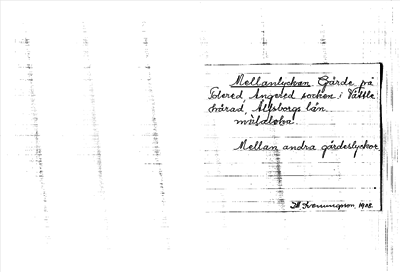 Mellanlyckan Gärde på
Tolered, Angered socken i Vättle
härad, Älfsborgs län.
mälaloka.
Mellan andra gärdeslyckor.
1908.